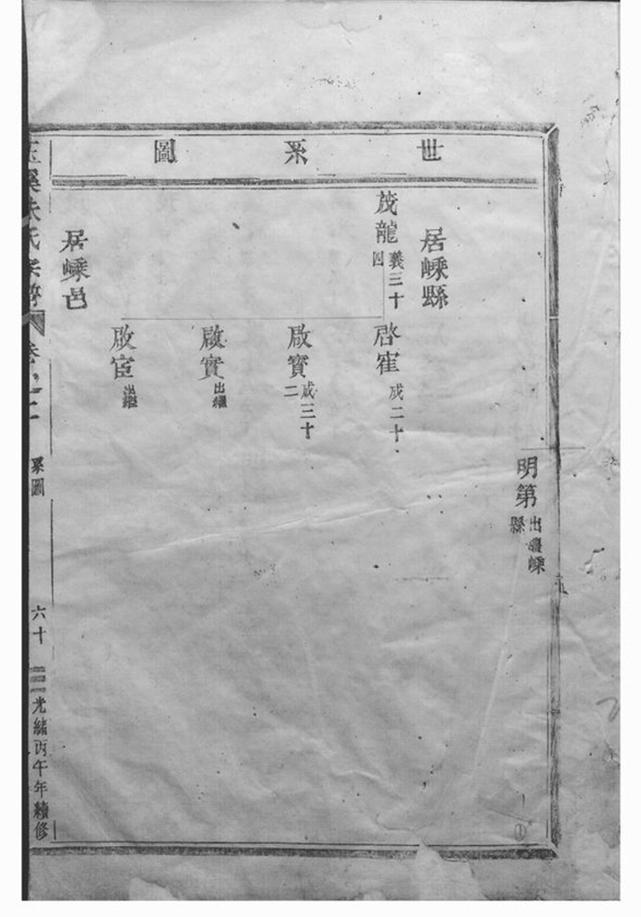 世系圖
明第 出繼嵊縣
居嵊縣
茂龍 義三十四
啓寉 成二十
啟寶 成三十二
啟實 出繼
啟宦 出繼
居嵊邑
玉溪朱氏宗譜
系圖
六十
光緒丙午年續修